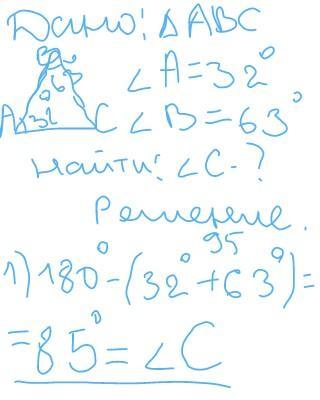 Дано: △ABC
∠A=32°
∠B=63°
B 63°
A 32° C
Найти: ∠C-?
Решение.
95
1) 180°-(32°+63°)=
=85°=∠C